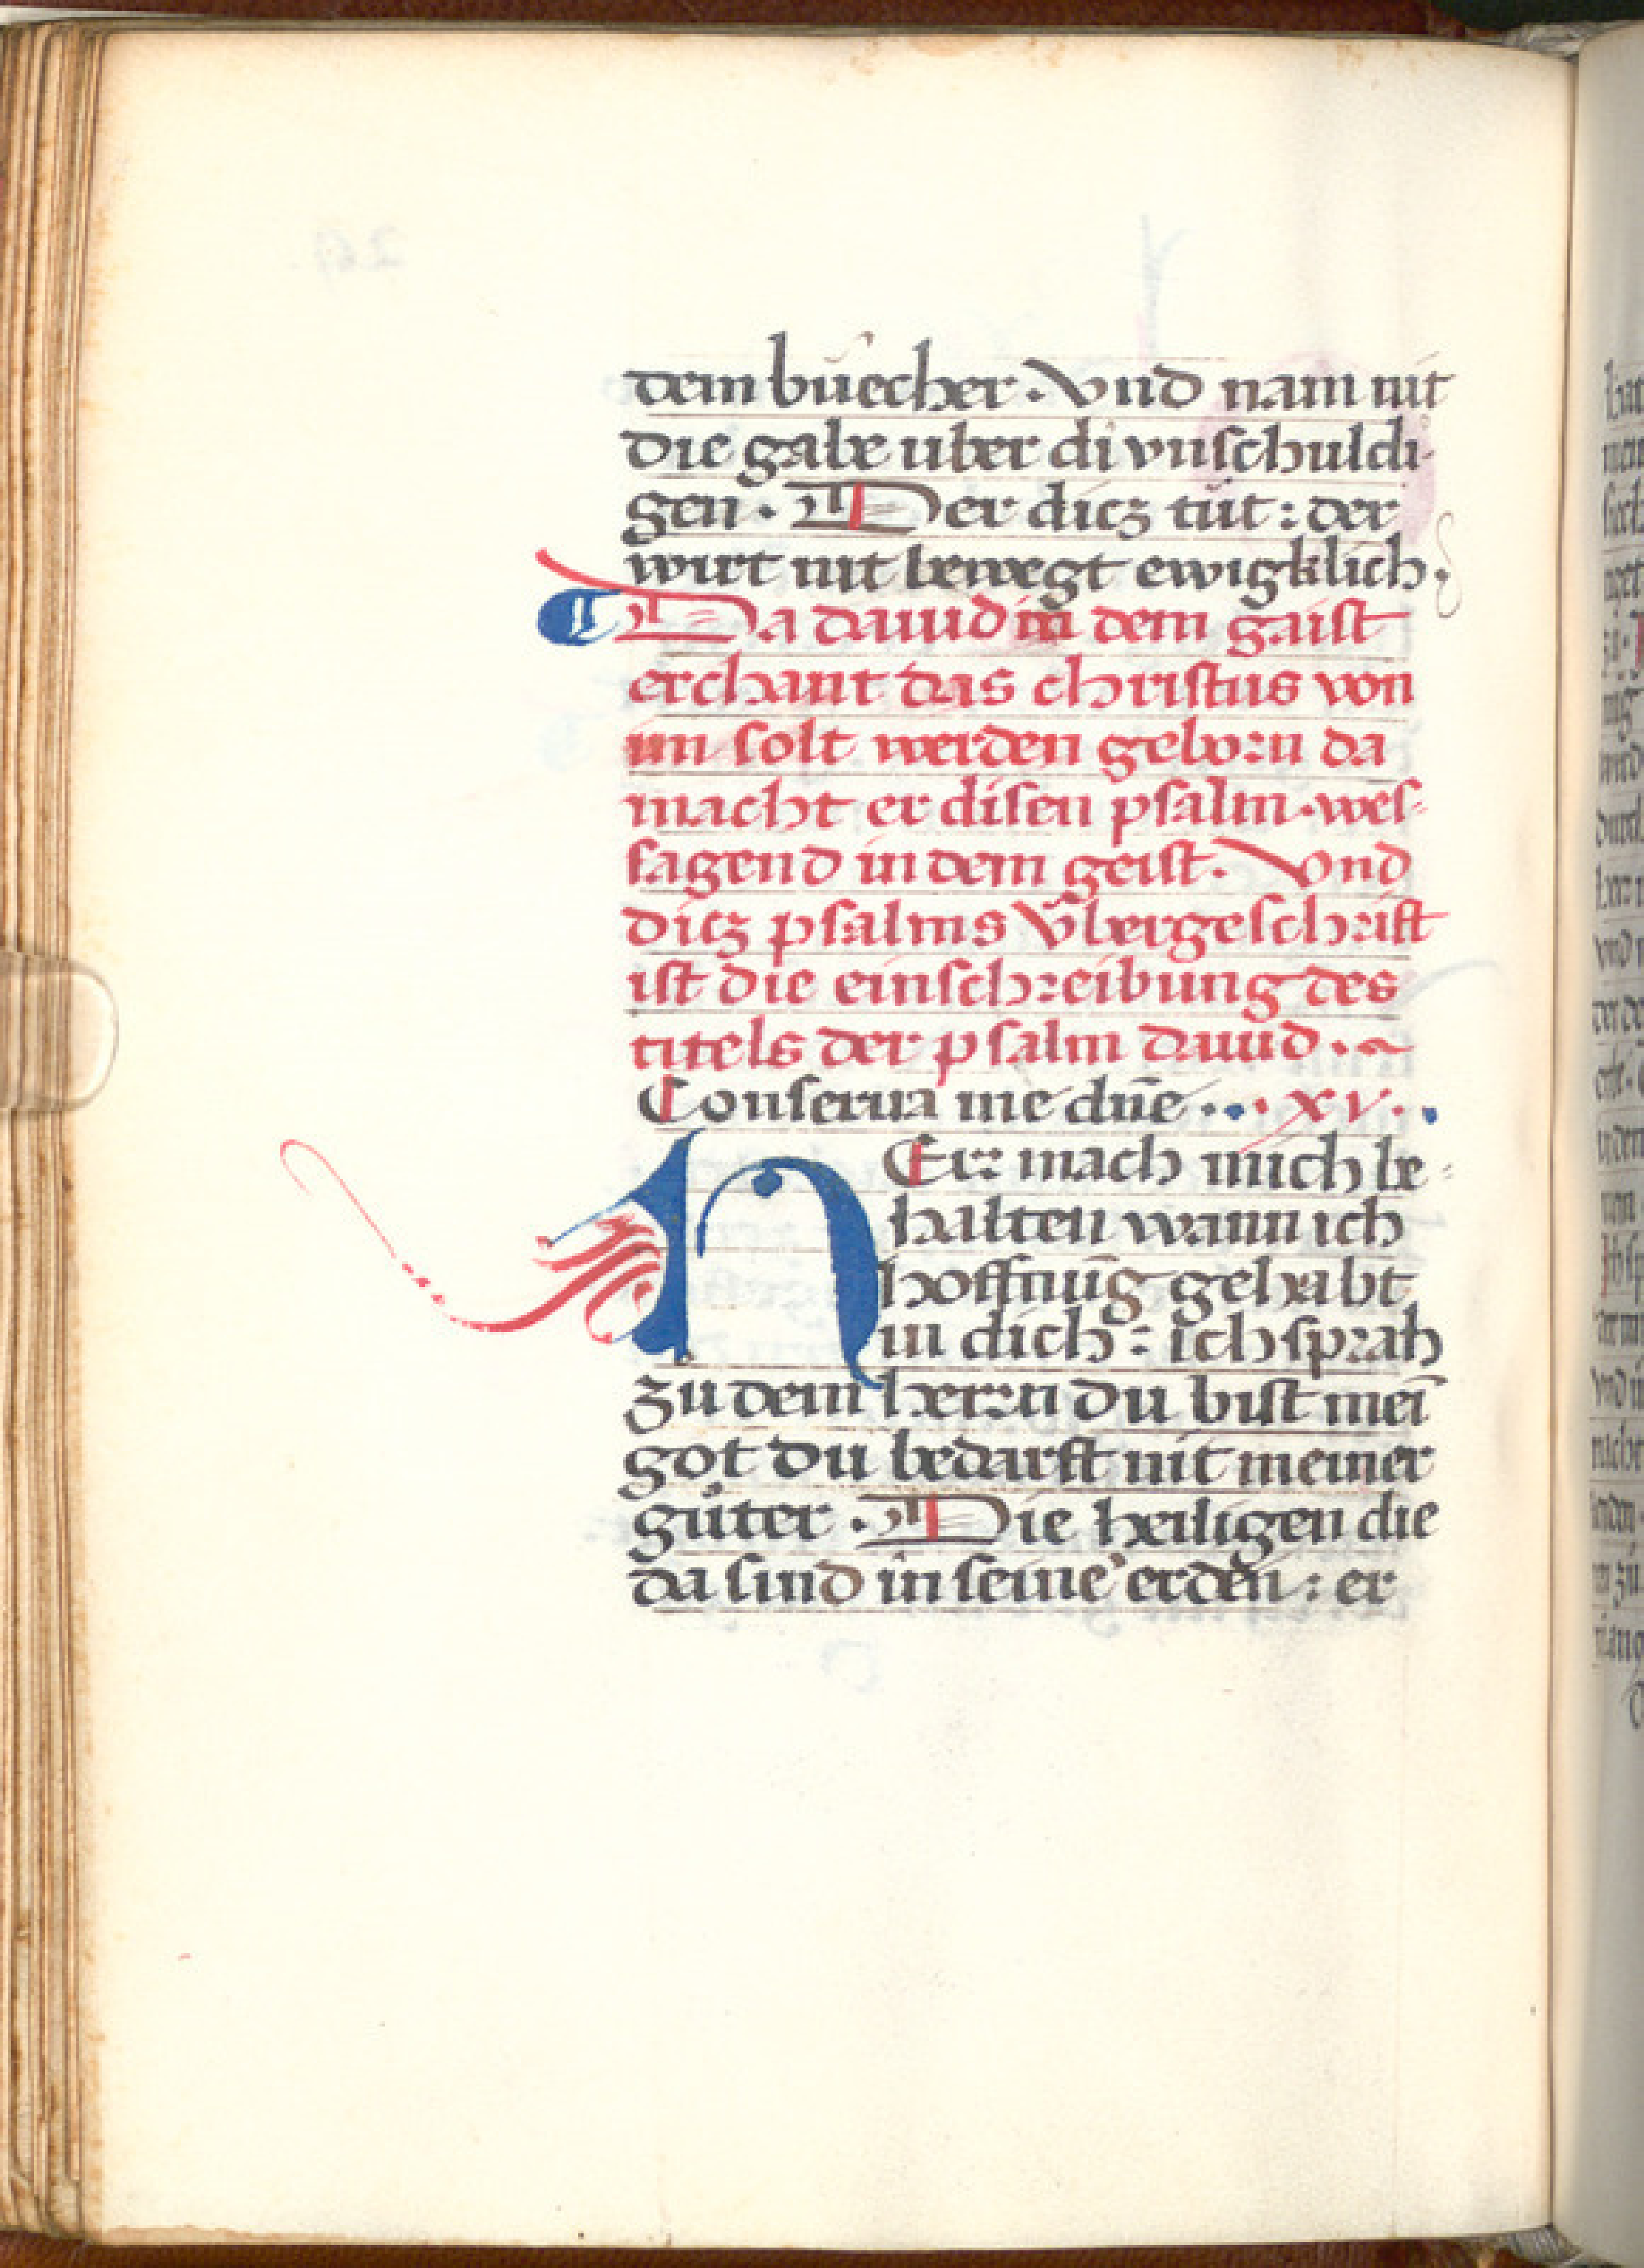 dem buecher · Vnd nam nit
die gabe uber di vnschuldi-
gen · Der dicz tuͤt : der
wirt nit bewegt ewigklich·
Da dauid in dem gaist
erchant das christus von
im solt werden geborn da
macht er disen psalm · weſ-
sagend in dem geist · Vnd
dicz psalms vͤbergeschrift
ist die einschreibung des
titels der psalm dauid ·
Conserua me dn̄e · · · xv · ·
HErr mach mich be-
halten wann ich
hoffnūg gehabt
in dich : ich sprah
zu dem herrn du bist mei̅
got du bedarft nit meiner
guͤter · Die heiligen die
da sind in seine' erden : er